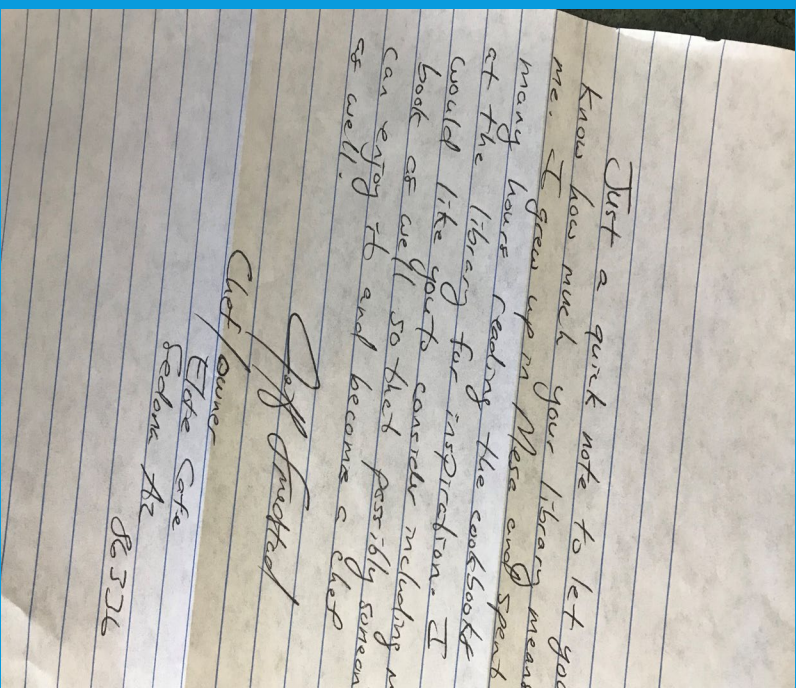 Just a quick note to let you
know how much your library means
me. I grew up in Mesa and spent
many hours reading the cookbooks
at the library for inspiration. I
would like you to consider including m
book as well so that possibly someon
can enjoy it and become a Chef
as well.
Jeff Smedstad
Chef/owner
Elote Cafe
Sedona AZ
86336